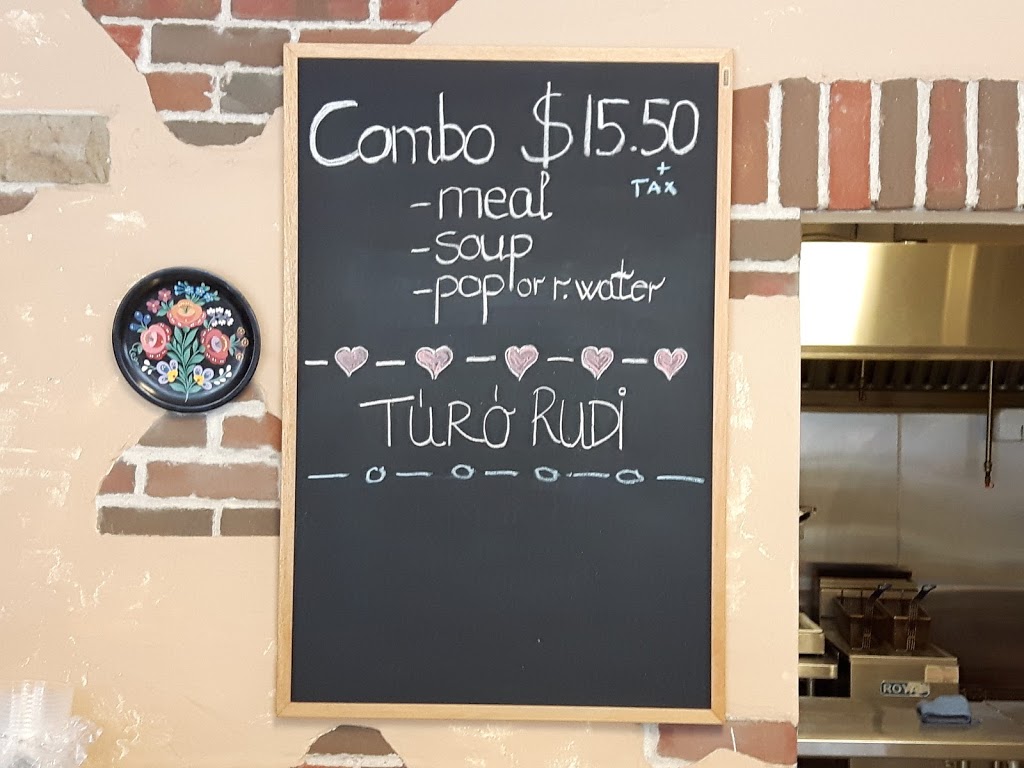 Combo $15.50
+
TAX
-meal
-soup
-pop or r. water
TÚRÓ RUDI